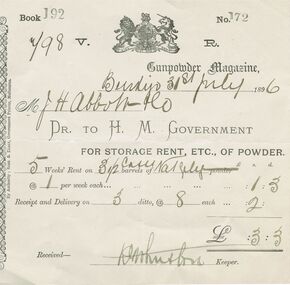 Book 192 No. 172
798 V. R.
Gunpowder Magazine,
Bendigo 31st July 1896
M J H Abbott & Co
DR. TO H. M. GOVERNMENT
FOR STORAGE RENT, ETC., OF POWDER.
5 Weeks' Rent on 3 barrels of
@ 1 per week each... 1: 3
Receipt and Delivery on 3 ditto @ 8 each ... 2:
£ 3: 3
Received— Keeper.